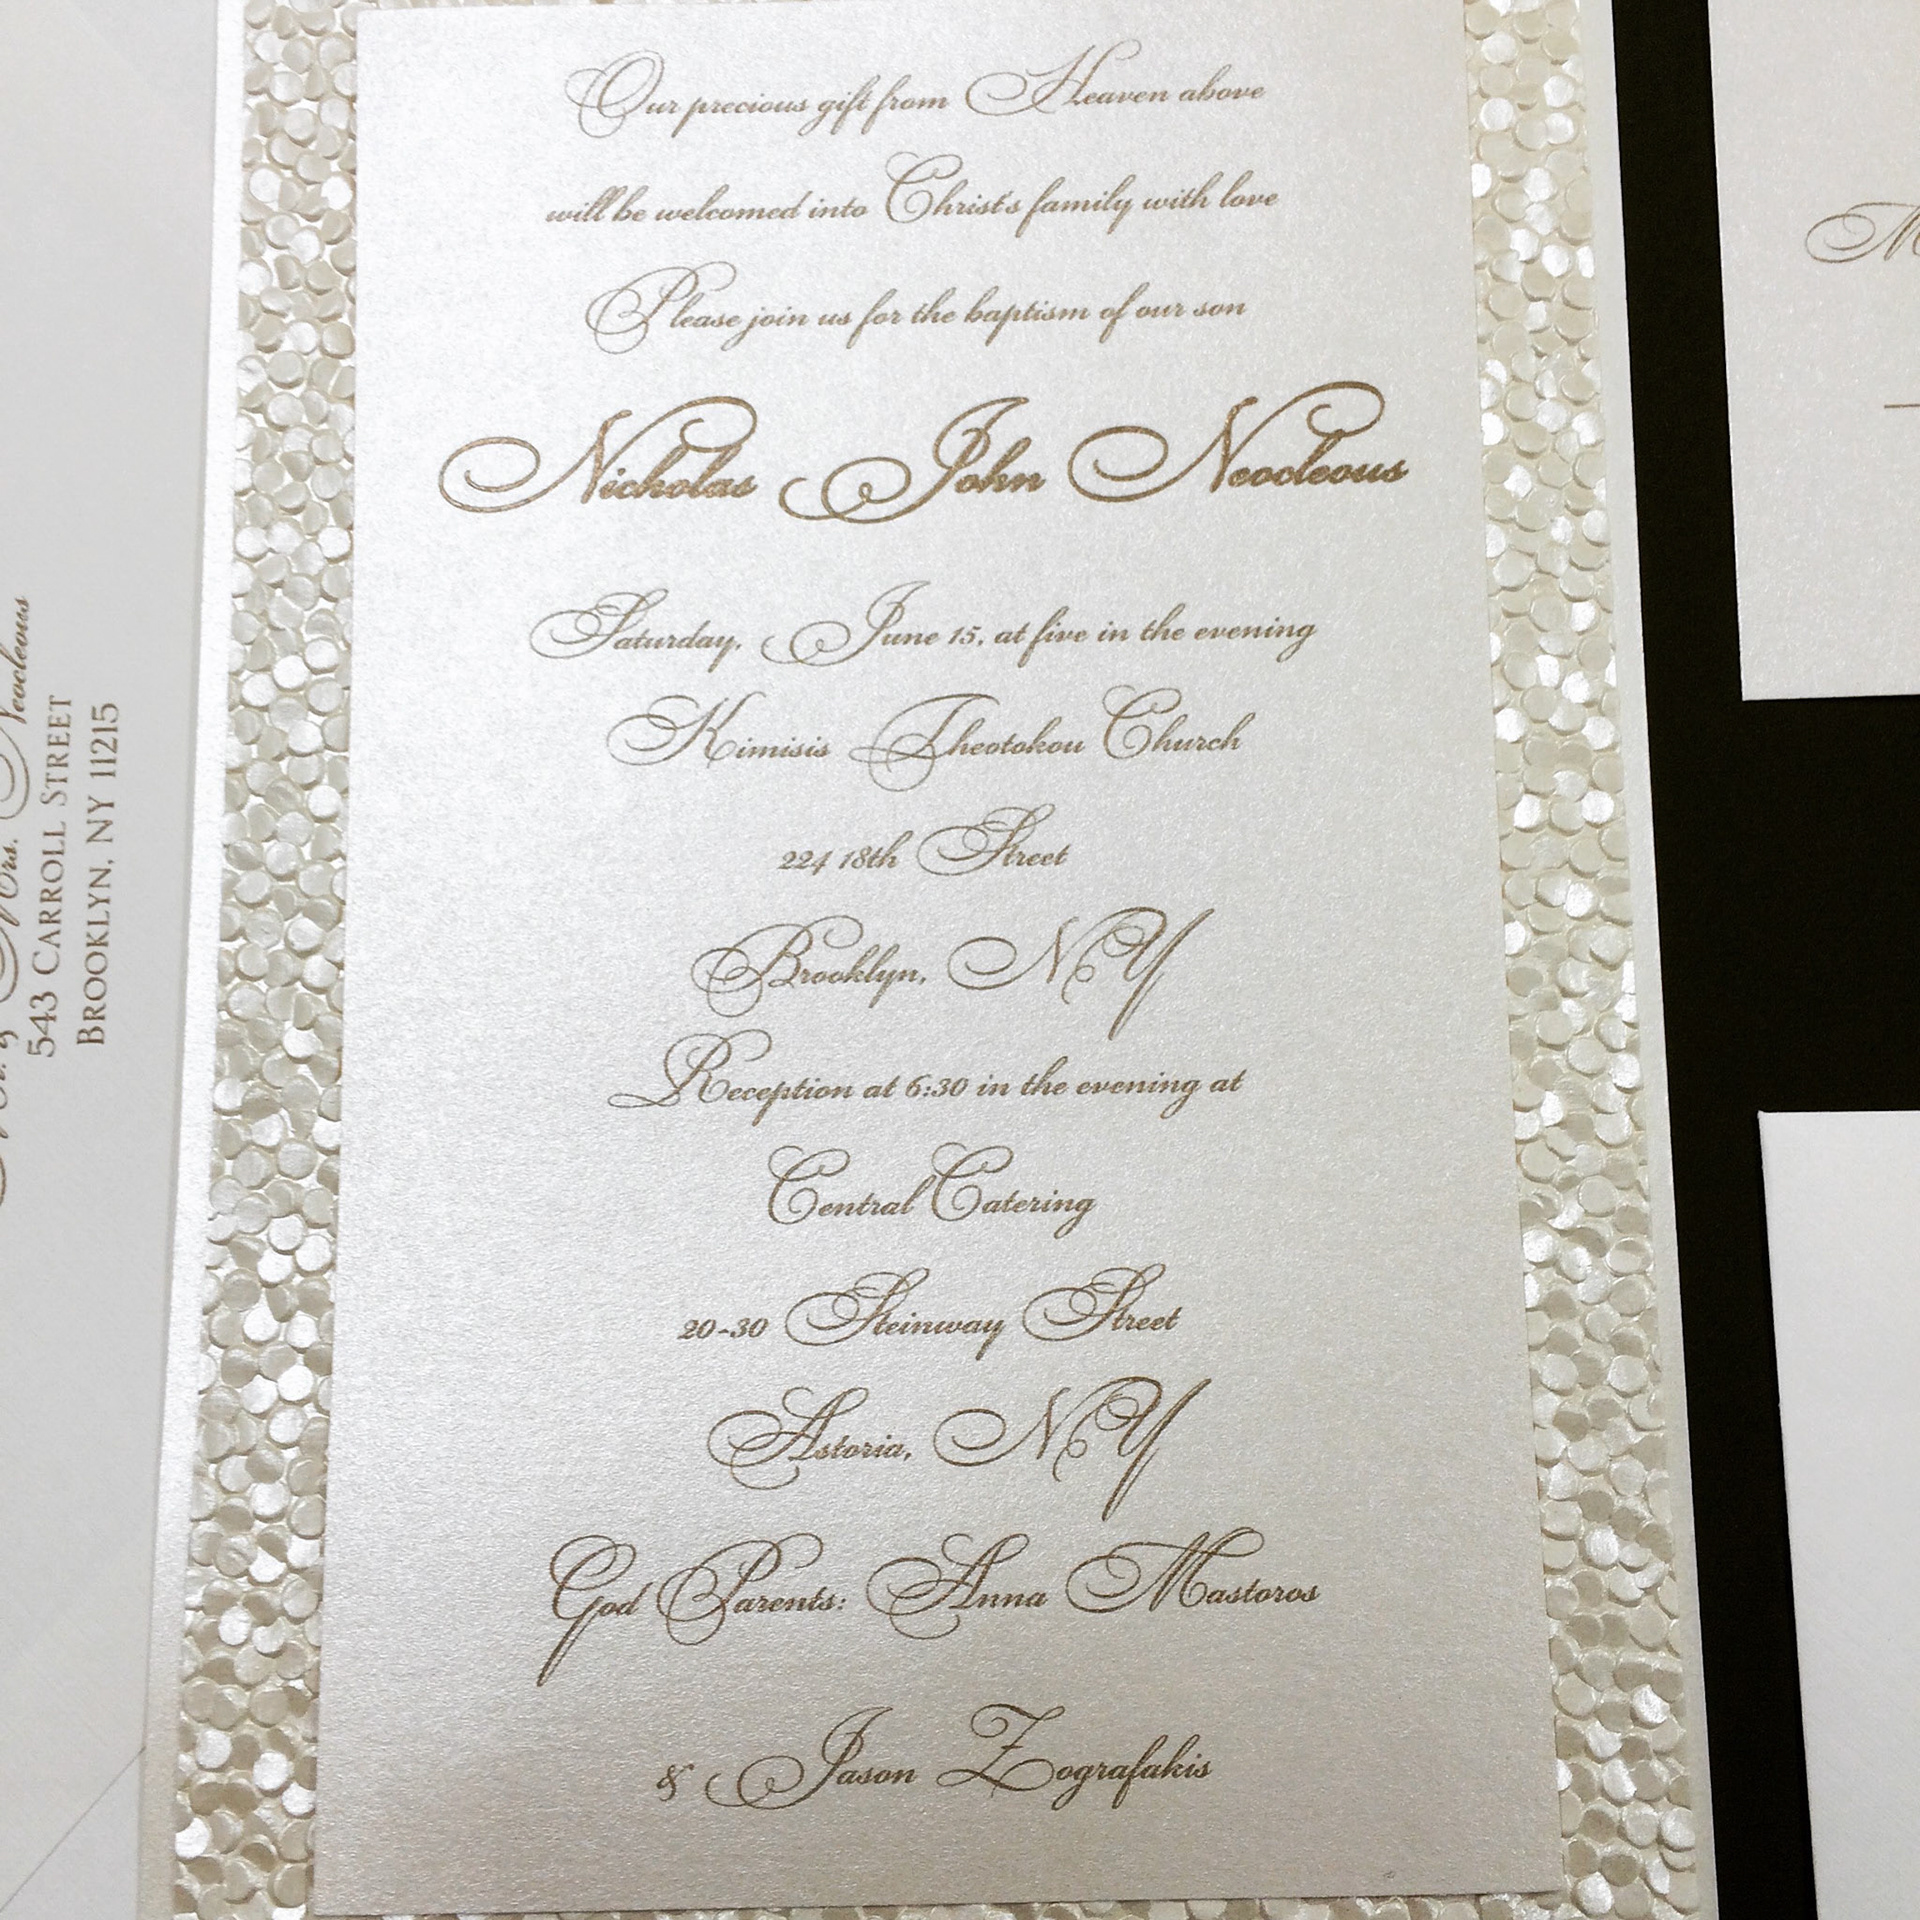 Our precious gift from Heaven above
will be welcomed into Christ's family with love
Please join us for the baptism of our son
Nicholas John Neocleous
Saturday, June 15, at five in the evening
Kimisis Theotokou Church
224 18th Street
Brooklyn, NY
Reception at 6:30 in the evening at
Central Catering
20-30 Steinway Street
Astoria, NY
God Parents: Anna Mastoros
& Jason Zografakis
Mrs. Neocleous
543 CARROLL STREET
BROOKLYN, NY 11215
M